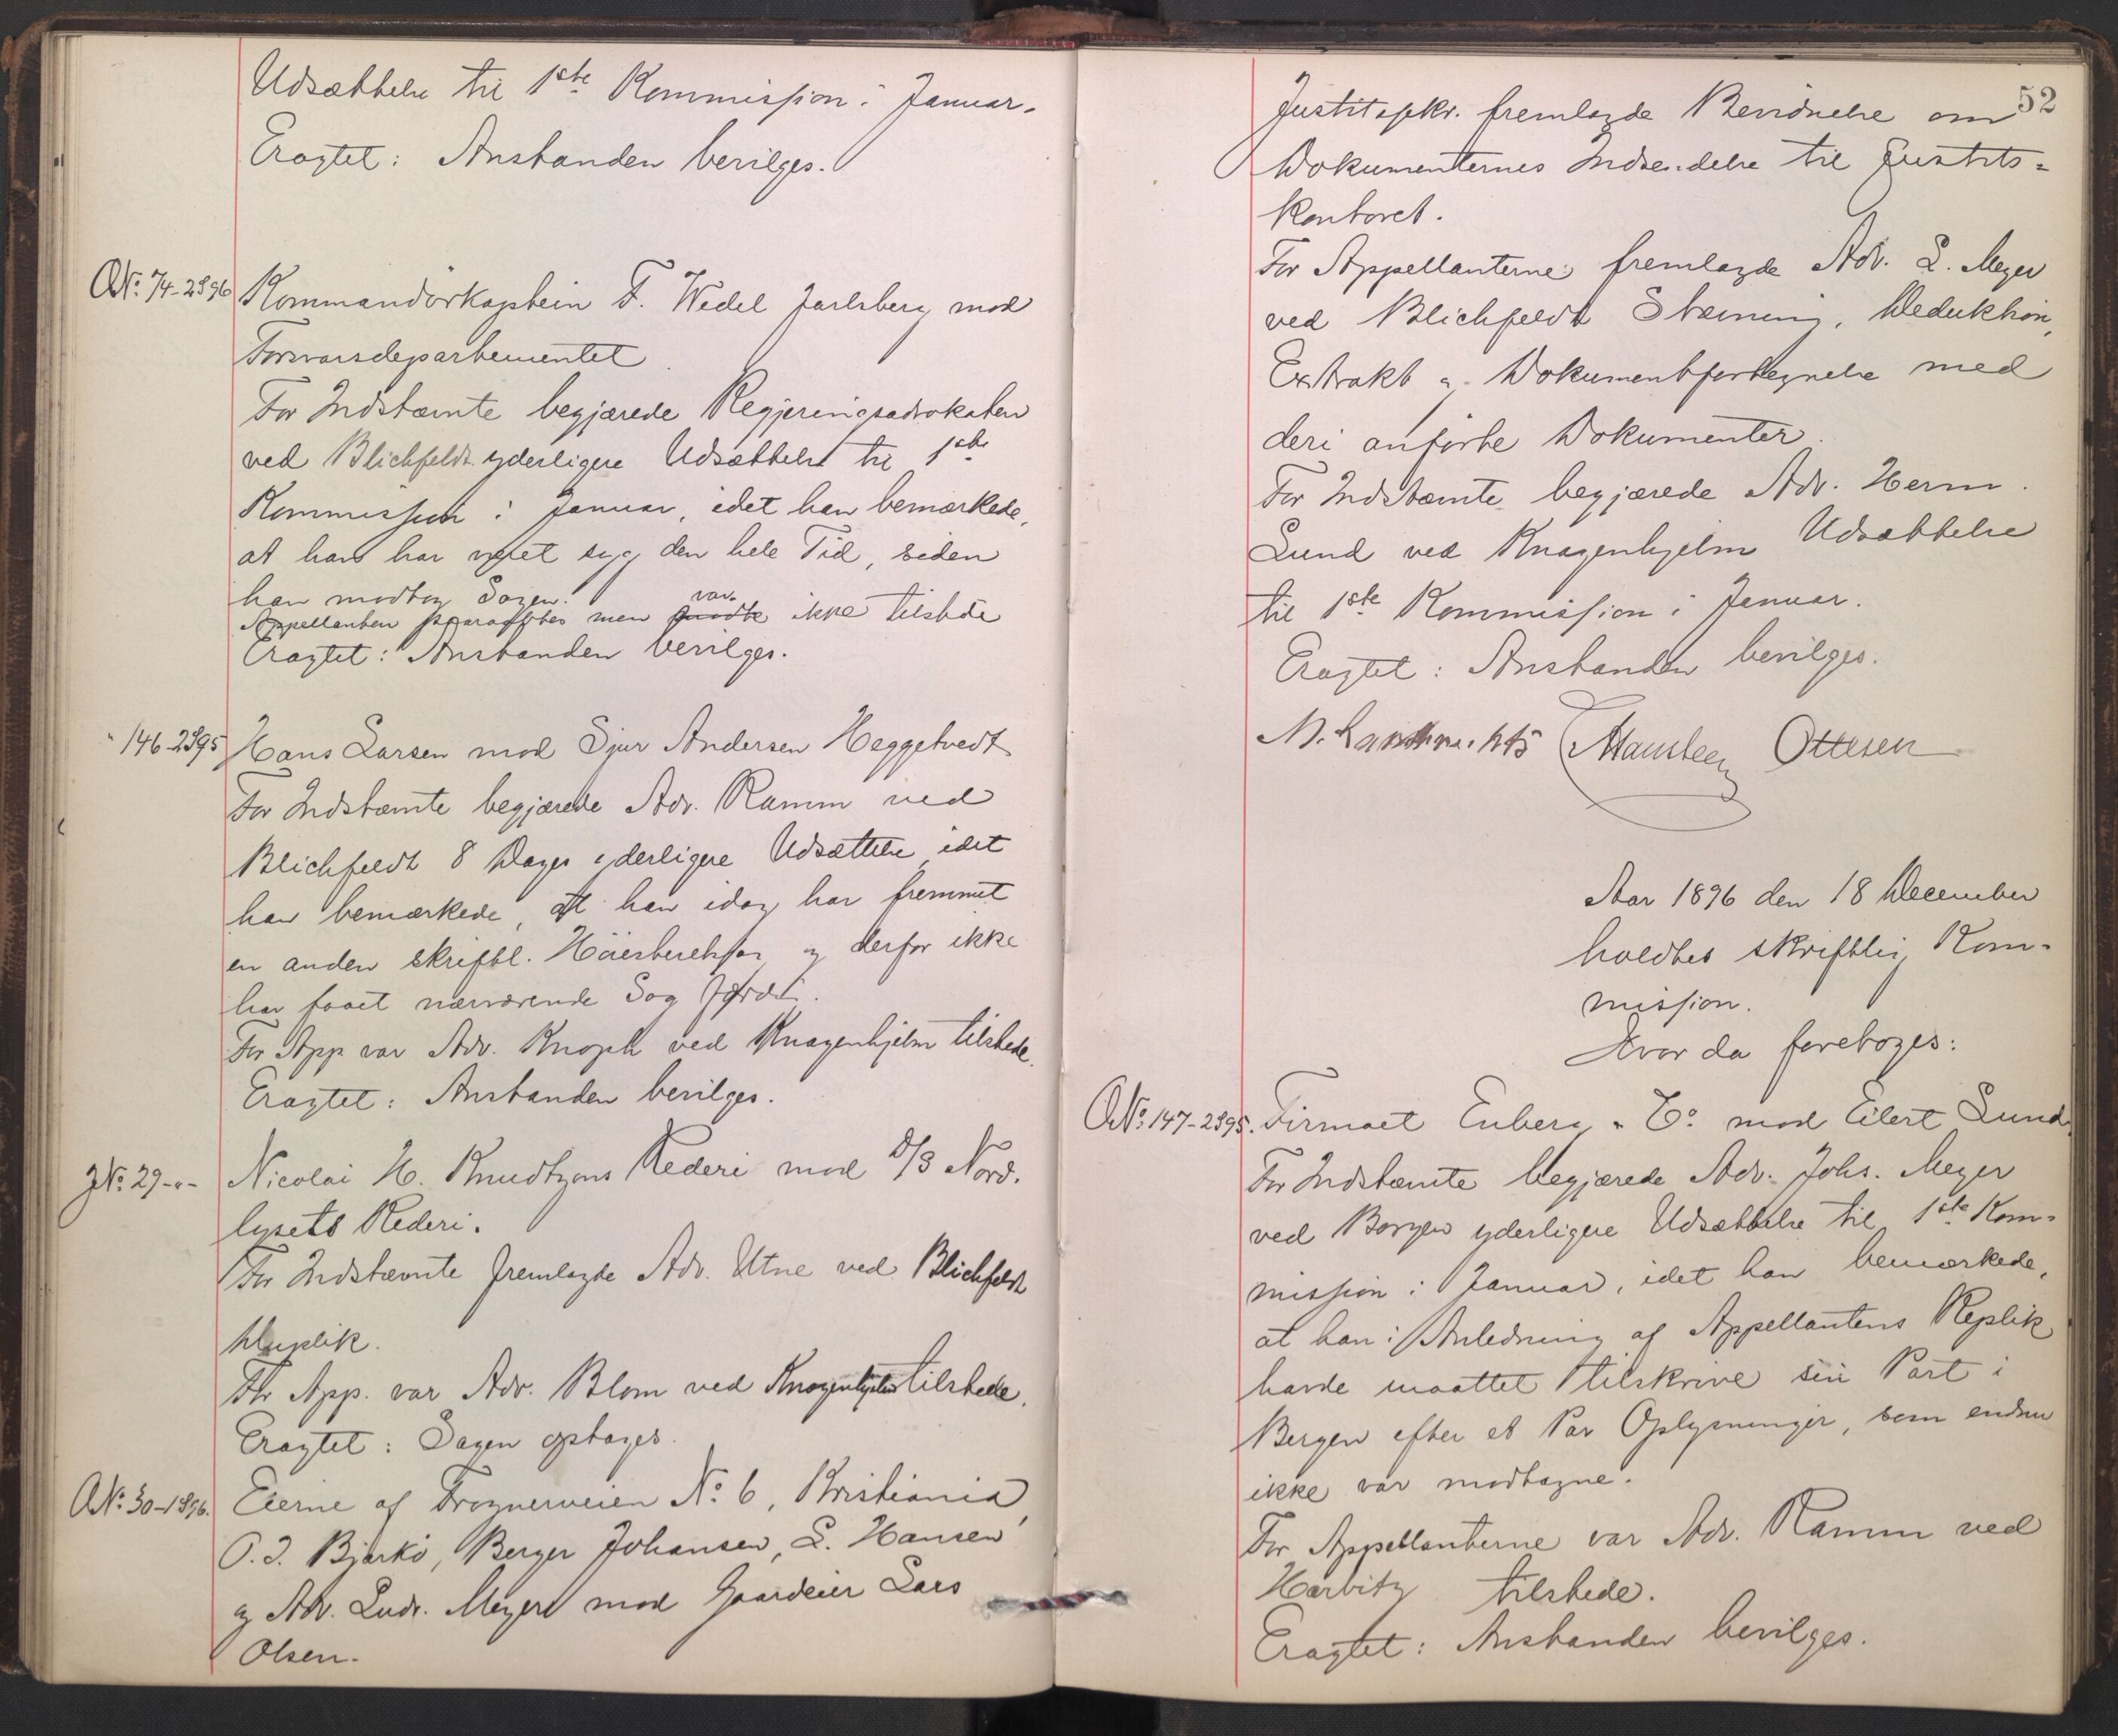 Udsættelse til 1ste Kommission i Januar.
Eragtet: Anstanden bevilges.
A No. 74-2/1896 Kommandörkaptein F. Wedel Jarlsberg mod
Forsvarsdepartementet
For Indstævnte begjærede Regjeringsadvokaten
ved Blichfeldt yderligere Udsættelse til 1ste
Kommission i Januar, idet han bemærkede,
at han har været syg den hele Tid, siden
han modtog Sagen.
Appellanten paaraabtes men var ikke tilstede
Eragtet: Anstanden bevilges.
" 146-2/1895 Hans Larsen mod Sjur Andersen Heggetvedt
For Indstævnte begjærede Adv. Ramm ved
Blichfeldt 8 Dages yderligere Udsættelse idet
han bemærkede, at han idag har fremmet
en anden skriftl. Höiesteretssag og derfor ikke
har faaet nærværende Sag færdig.
For App var Adv. Knoph ved Knagenhjelm tilstede.
Eragtet: Anstanden bevilges.
J No. 29-"- Nicolai H. Knudtzons Rederi mod D/S Nord-
lysets Rederi.
For Indstævnte fremlagde Adv. Utne ved Blichfeldt
Duplik.
For App. var Adv. Blom ved Knagenhjelm tilstede.
Eragtet: Sagen optages.
A No. 30-1/1896. Eierne af Frognerveien No. 6, Kristiania,
O. J. Bjerkö, Berger Johansen, L. Hansen
og Adv. Ludv. Meyer mod Gaardeier Lars
Olsen.
52
Justitssekr. fremlagde Bevidnelse om
Dokumenternes Indsendelse til Justits-
kontoret.
For Appellanterne fremlagde Adv. L. Meyer
ved Blichfeldt Stævning, Deduktion,
Extrakt og Dokumentfortegnelse med
deri anförte Dokumenter.
For Indstævnte begjærede Adv. Herm.
Lund ved Knagenhjelm Udsættelse
til 1ste Kommission i Januar.
Eragtet: Anstanden bevilges.
Hansteen Ottesen
Aar 1896 den 18 December
holdtes skriftlig Kom-
mission.
Hvor da foretoges:
A No. 147-2/1895. Firmaet Enberg & Co. mod Eilert Lund
For Indstævnte begjærede Adv. Johs. Meyer
ved Borgen yderligere Udsættelse til 1ste Kom-
mission i Januar, idet han bemærkede,
at han i Anledning af Appellantens Replik
havde maattet tilskrive sin Part i
Bergen efter et Par Oplysninger, som endnu
ikke var modtagne.
For Appellanterne var Adv. Ramm ved
Harbitz tilstede.
Eragtet: Anstanden bevilges.